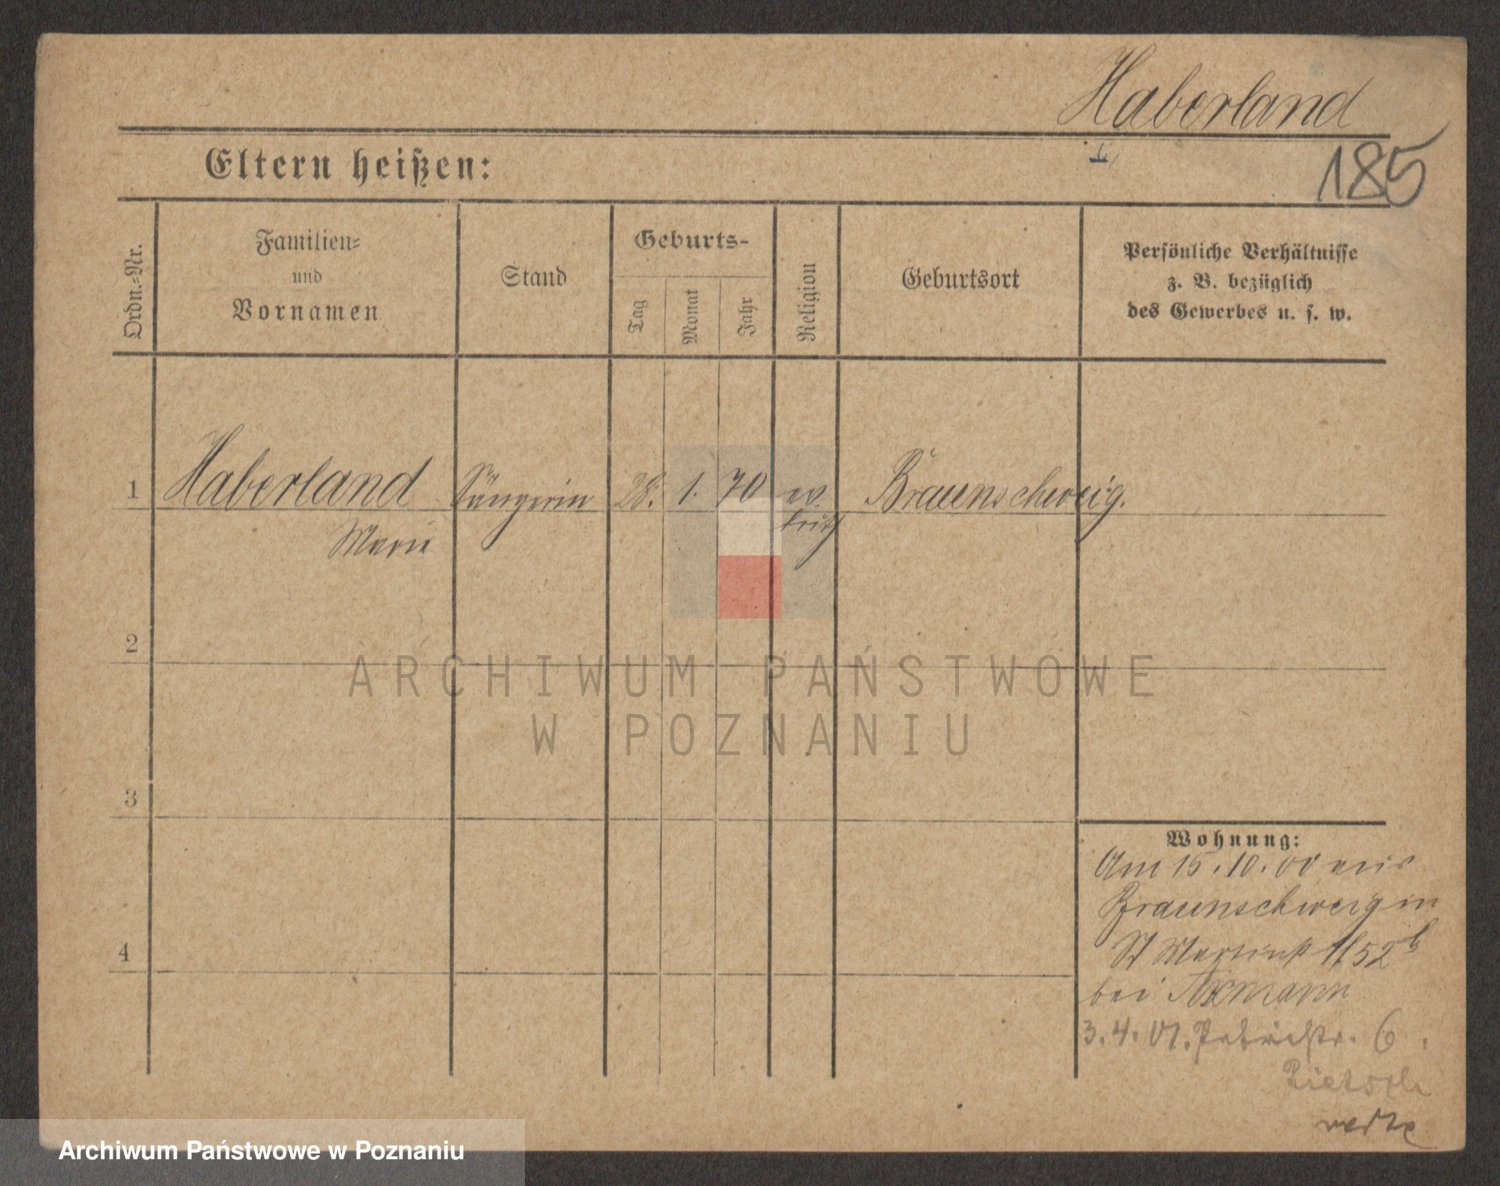 Haberland
I,
185
Eltern heißen:
Ordn.-Nr.
Familien-
und
Vornamen
Stand
Geburts-
Tag
Monat
Jahr
Religion
Geburtsort
Persönliche Verhältnisse
z. B. bezüglich
des Gewerbes u. s. w.
1
Haberland
Sängerin
28.
1.
70
ev.
Braunschweig.
Marie
luth
2
3
4
Wohnung:
Am 15.10.00 aus
Braunschweig in
St Martinst 52b
bei Axmann
3.4.01. Petristr. 6.
ARCHIWUM PAŃSTWOWE
W POZNANIU
Archiwum Państwowe w Poznaniu